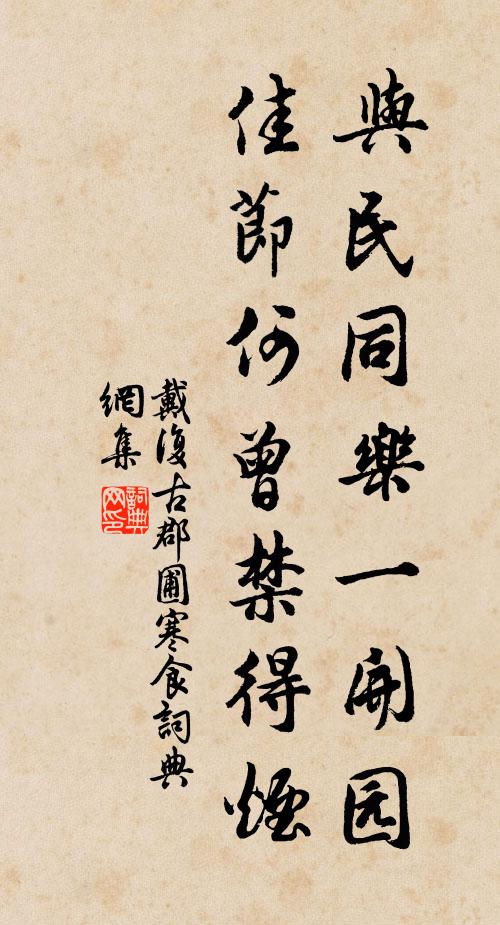 與民同樂一開园
佳節何曾禁得煙
戴復古郡圃寒食詞典
網集
詞典網印